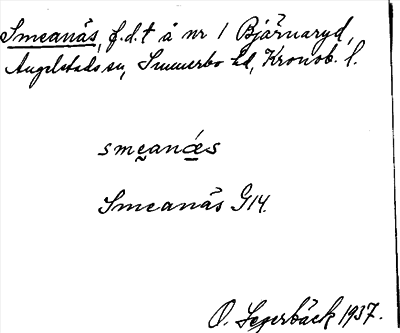 Smeanäs, f.d.t å nr 1 Bjärnaryd,
Angelstads sn, Sunnerbo hd, Kronob. l.
smeanæ̱s
Smeanäs G14.
O. Segerbäck 1937.